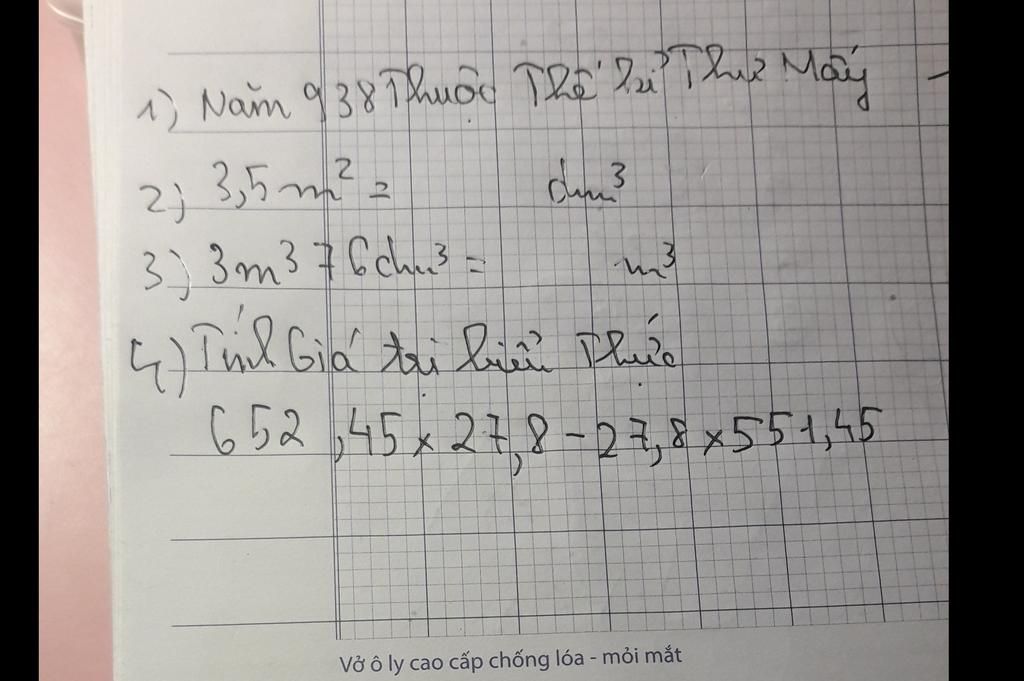 1) Năm 938 Thuộc Thế kỉ Thứ Mấy
2) 3,5 m² = dm³
3) 3m³ 76dm³ = m³
4) Tính Giá trị biểu Thức
652,45 × 27,8 - 27,8 × 551,45
Vở ô ly cao cấp chống lóa - mỏi mắt